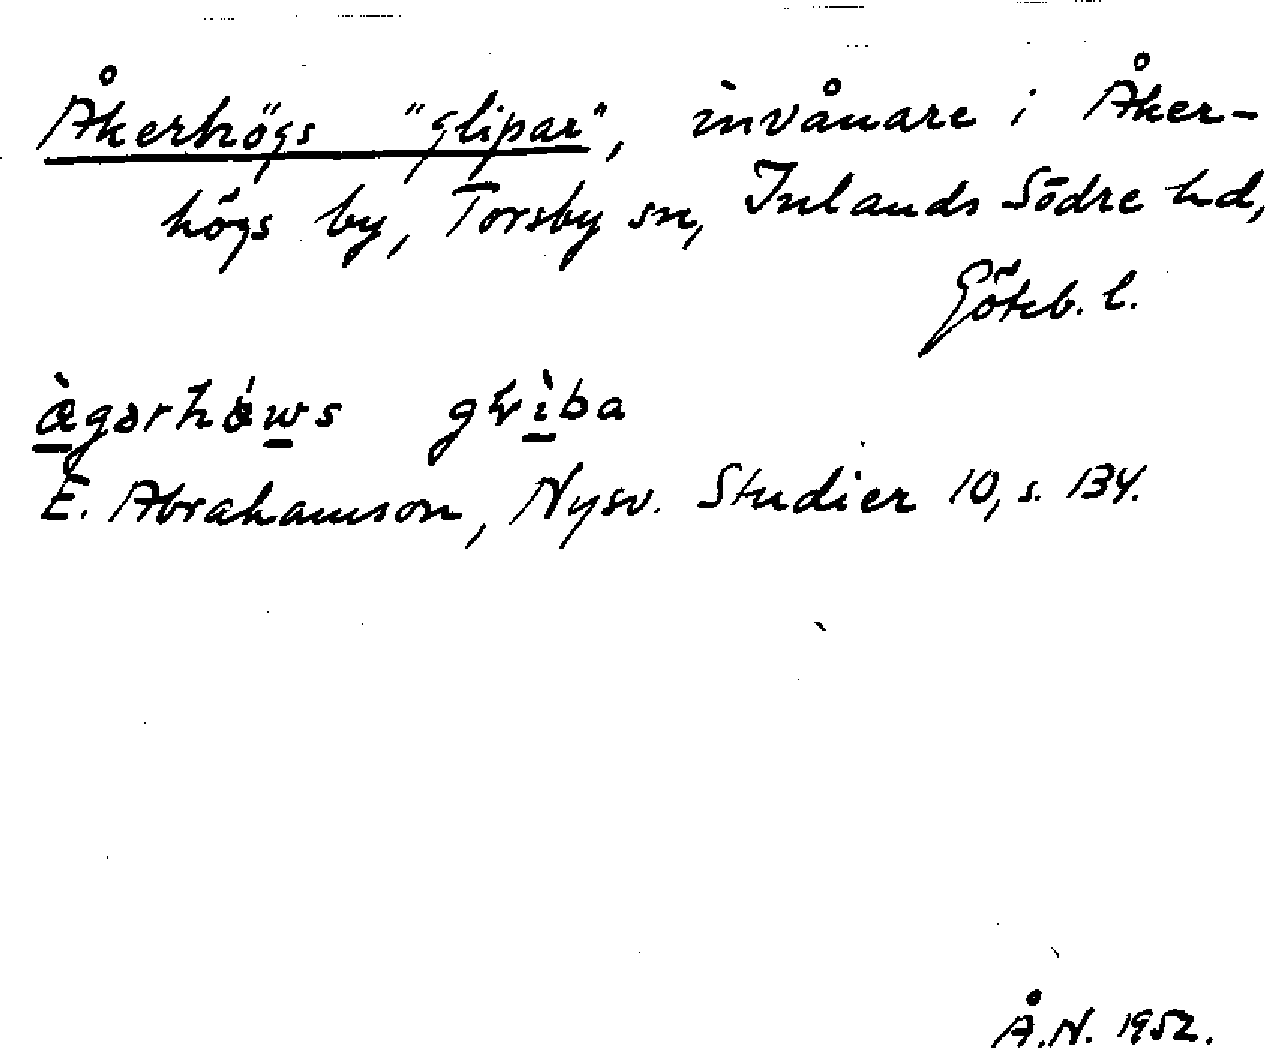 Åkerhögs "glipar", invånare i Åker-
högs by, Torsby sn, Inlands Södre hd,
Göteb. l.
E. Abrahamson, Nysv. Studier 10, s. 134.
Å.N. 1952.